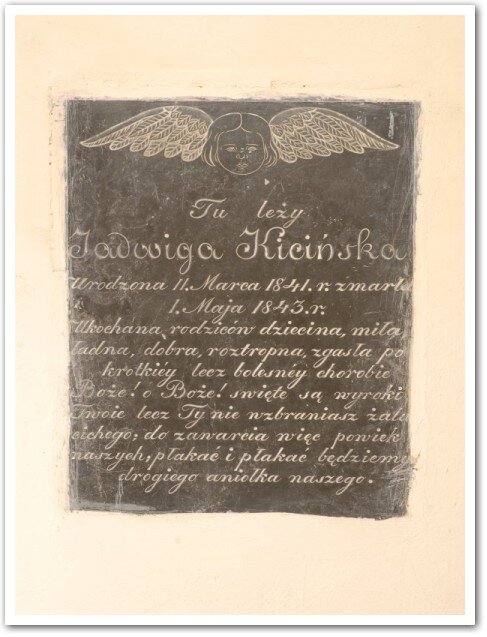 Tu leży
Jadwiga Kicińska
Urodzona 11. Marca 1841. r. zmarła
1. Maja 1843. r.
Ukochana rodziców dziecina, miła
ładna, dobra, roztropna, zgasła po
krotkiéy lecz bolesnéy chorobie
Boże! o Boże! swięte są wyroki
Twoie lecz Ty nie wzbraniasz żalu
cichego; do zawarcia więc powiek
naszych, płakać i płakać będziemy
drogiego aniołka naszego.